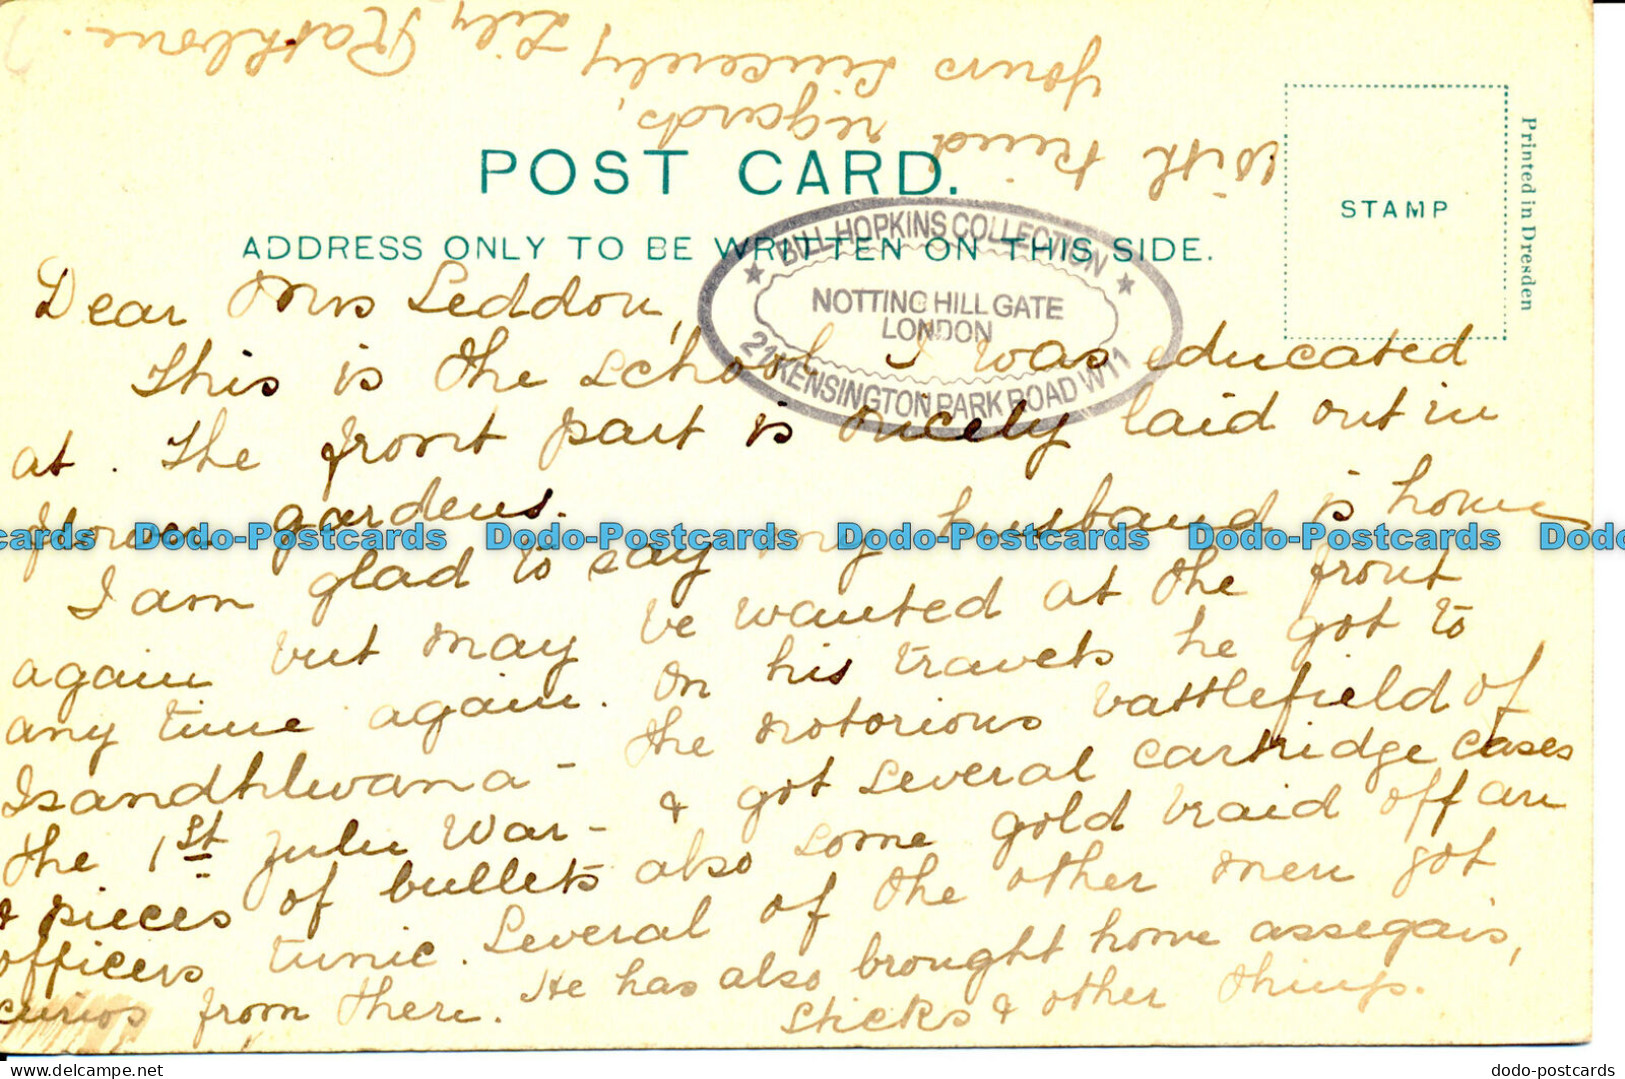 With kind regards,
yours sincerely Lily Rathbone.
POST CARD.
STAMP
Printed in Dresden
ADDRESS ONLY TO BE WRITTEN ON THIS SIDE.
BILL HOPKINS COLLECTION
NOTTING HILL GATE
LONDON
KENSINGTON PARK ROAD W11
Dear Mrs Leddon,
This is the school I was educated
at. The front part is nicely laid out in
flower gardens.
I am glad to say my husband is home
again but may be wanted at the front
any time again. On his travels he got to
Isandhlwana - the notorious battlefield of
the 1st Zulu War - & got several cartridge cases
& pieces of bullets also some gold braid off an
officers tunic. Several of the other men got
curios from there. He has also brought home assegais,
sticks & other things.
Dodo-Postcards Dodo-Postcards Dodo-Postcards Dodo-Postcards
delcampe.net
dodo-postcards